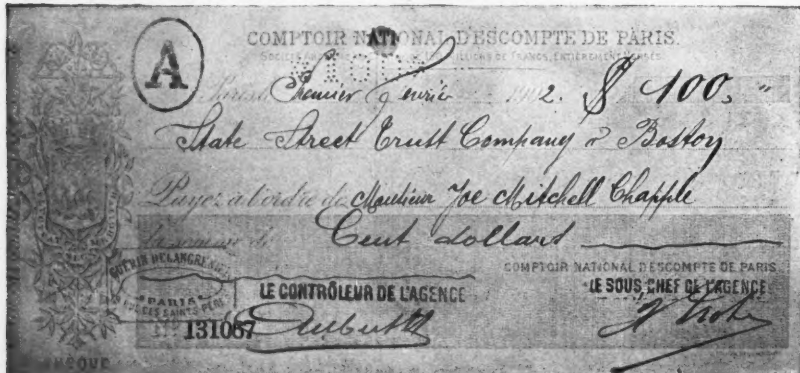 A
COMPTOIR NATIONAL D'ESCOMPTE DE PARIS.
DE FRANCS, ENTIÈREMENT VERSÉS
Premier 1912. $ 100,
State Street Trust Company Boston
Payez à l'ordre de Monsieur Joe Mitchell Chapple
la somme de Cent dollars
COMPTOIR NATIONAL D'ESCOMPTE DE PARIS
LE CONTRÔLEUR DE L'AGENCE
LE SOUS CHEF DE L'AGENCE
PARIS
RUE DES SAINTS PÈRES
131067
CHÈQUE